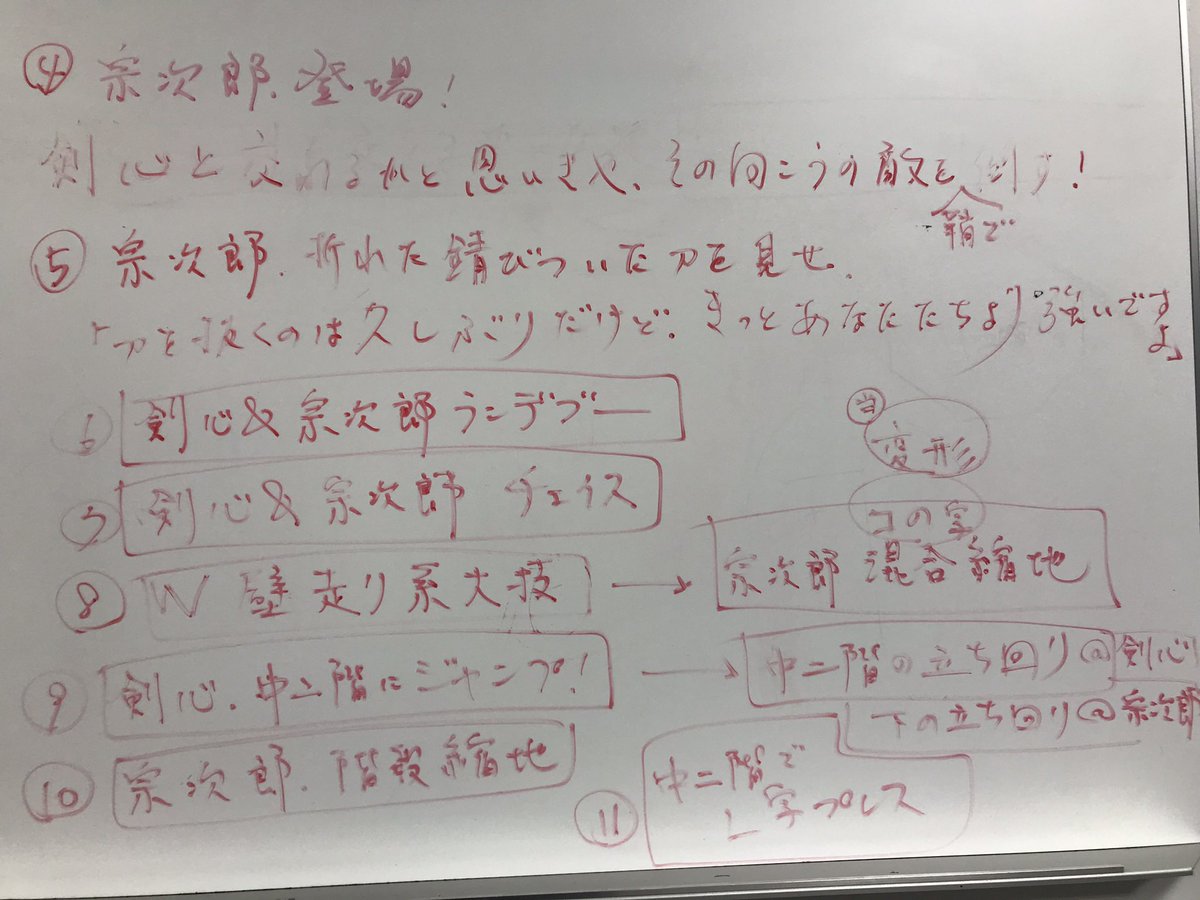 ④ 宗次郎、登場!
剣心と交わるかと思いきや、その向こうの敵を倒す!
鞘で
⑤ 宗次郎、折れた錆びついた刀を見せ、
「刀を抜くのは久しぶりだけど、きっとあなたたちより強いです
よ」
6 剣心&宗次郎 ランデブー
⑦ 剣心&宗次郎 チェイス
変形
コの字
⑧ W 壁走り系大技 → 宗次郎 混合縮地
⑨ 剣心、中二階にジャンプ! → 中二階の立ち回り@剣心
下の立ち回り@宗次郎
⑩ 宗次郎、階段縮地
⑪ 中二階で
L字プレス